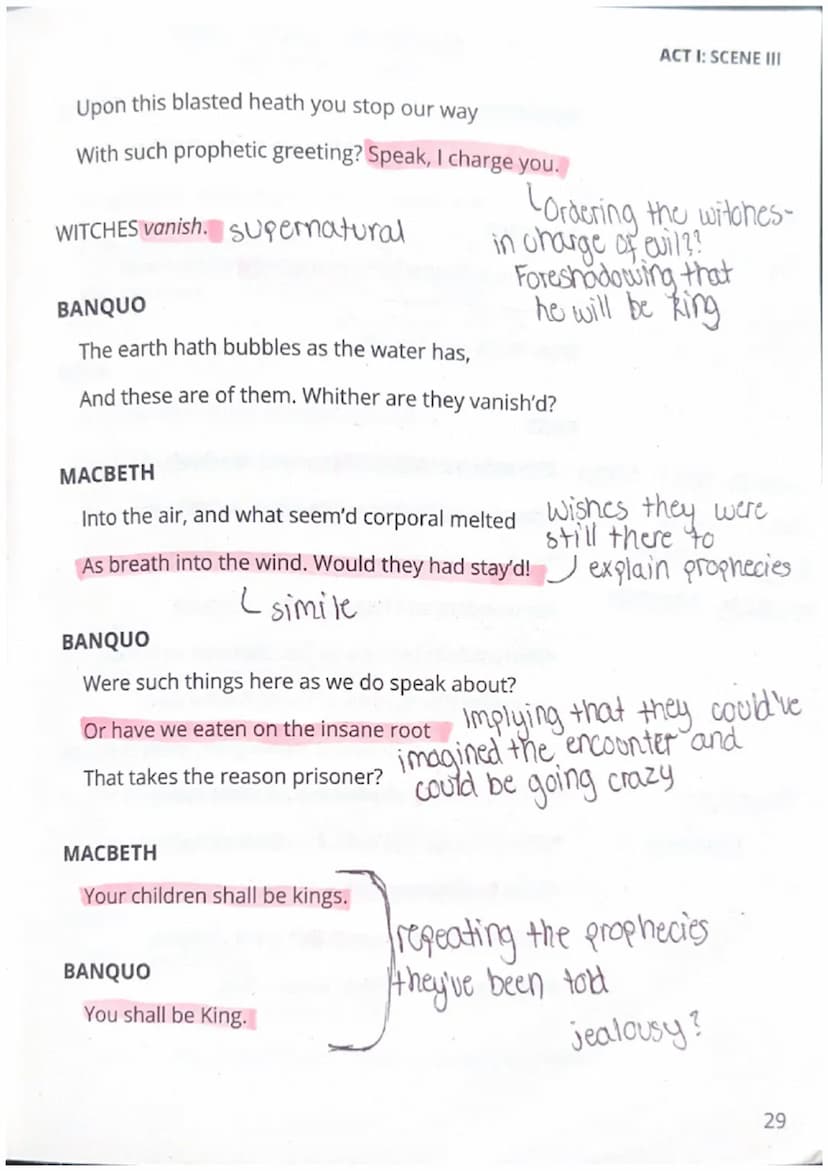 ACT I: SCENE III
Upon this blasted heath you stop our way
With such prophetic greeting? Speak, I charge you.
Ordering the witches-
in charge of evil??
Foreshadowing that
he will be king
WITCHES vanish. supernatural
BANQUO
The earth hath bubbles as the water has,
And these are of them. Whither are they vanish'd?
MACBETH
Into the air, and what seem'd corporal melted
As breath into the wind. Would they had stay'd!
wishes they were
still there to
explain prophecies
simile
BANQUO
Were such things here as we do speak about?
Or have we eaten on the insane root
That takes the reason prisoner?
Implying that they could've
imagined the encounter and
could be going crazy
MACBETH
Your children shall be kings.
BANQUO
You shall be King.
repeating the prophecies
they've been told
jealousy?
29